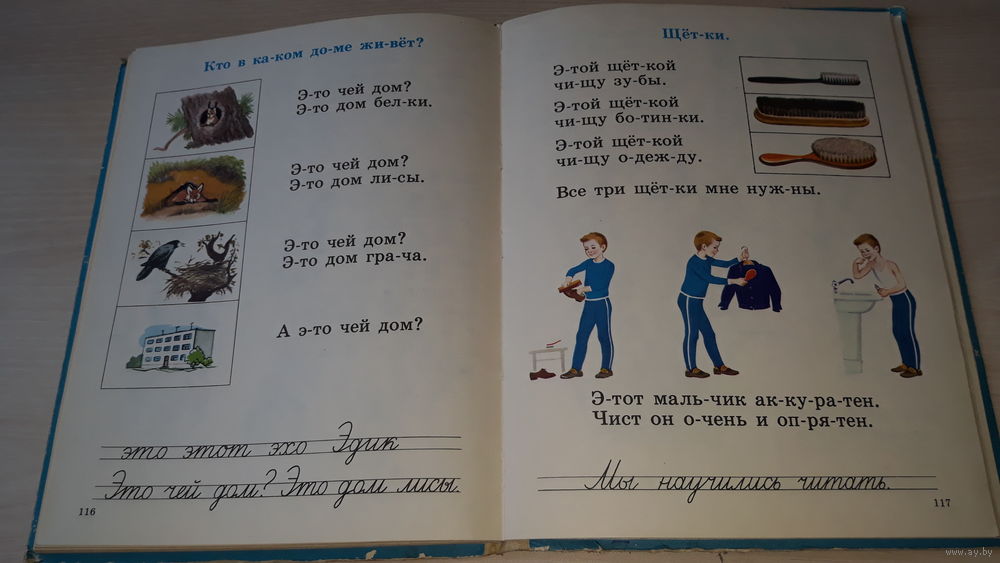 Кто в ка-ком до-ме жи-вёт?
Э-то чей дом?
Э-то дом бел-ки.
Э-то чей дом?
Э-то дом ли-сы.
Э-то чей дом?
Э-то дом гра-ча.
А э-то чей дом?
это этот эхо Эдик
Это чей дом? Это дом лисы.
116
Щёт-ки.
Э-той щёт-кой
чи-щу зу-бы.
Э-той щёт-кой
чи-щу бо-тин-ки.
Э-той щёт-кой
чи-щу о-деж-ду.
Все три щёт-ки мне нуж-ны.
Э-тот маль-чик ак-ку-ра-тен.
Чист он о-чень и оп-ря-тен.
Мы научились читать.
117
www.ay.by